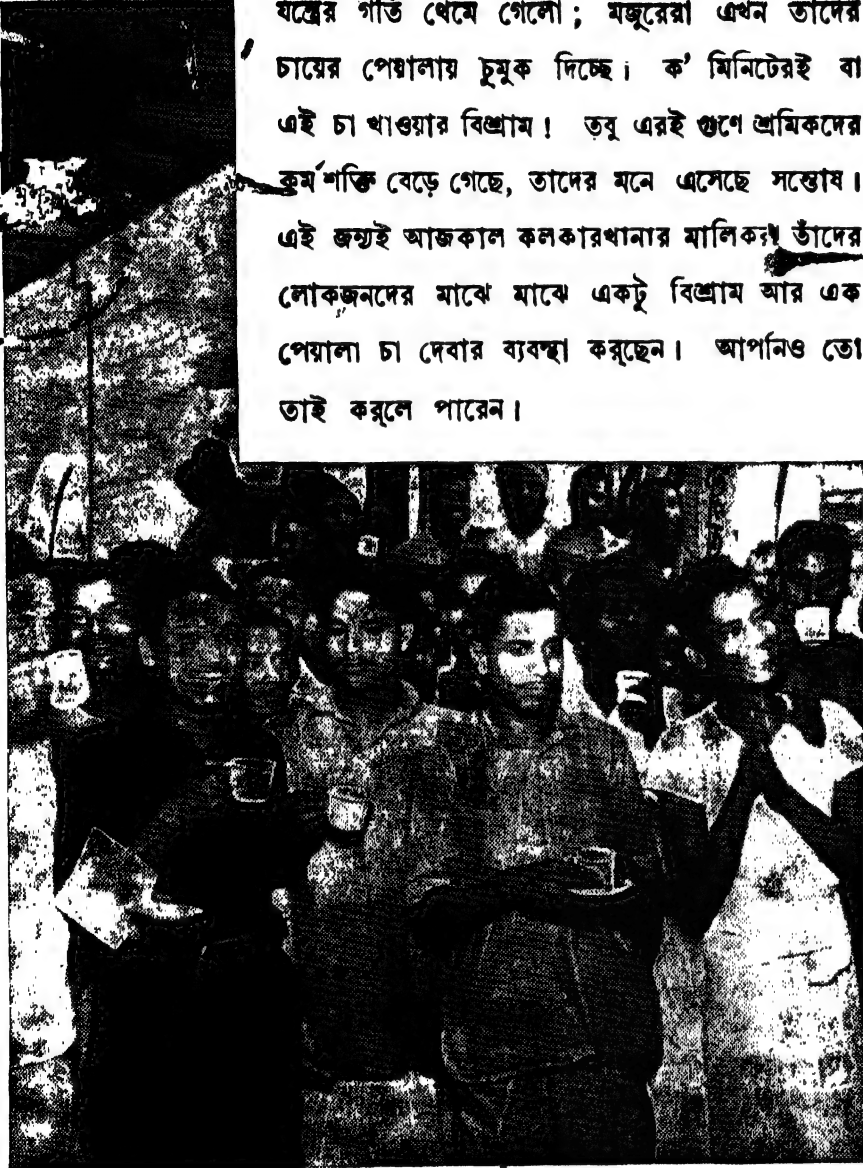 যন্ত্রের গতি থেমে গেলো ; মজুরেরা এখন তাদের
চায়ের পেয়ালায় চুমুক দিচ্ছে। ক' মিনিটেরই বা
এই চা খাওয়ার বিশ্রাম ! তবু এরই গুণে শ্রমিকদের
কর্মশক্তি বেড়ে গেছে, তাদের মনে এসেছে সন্তোষ।
এই জন্যই আজকাল কলকারখানার মালিকরা তাঁদের
লোকজনদের মাঝে মাঝে একটু বিশ্রাম আর এক
পেয়ালা চা দেবার ব্যবস্থা কর্‌ছেন। আপনিও তো
তাই কর্‌লে পারেন।